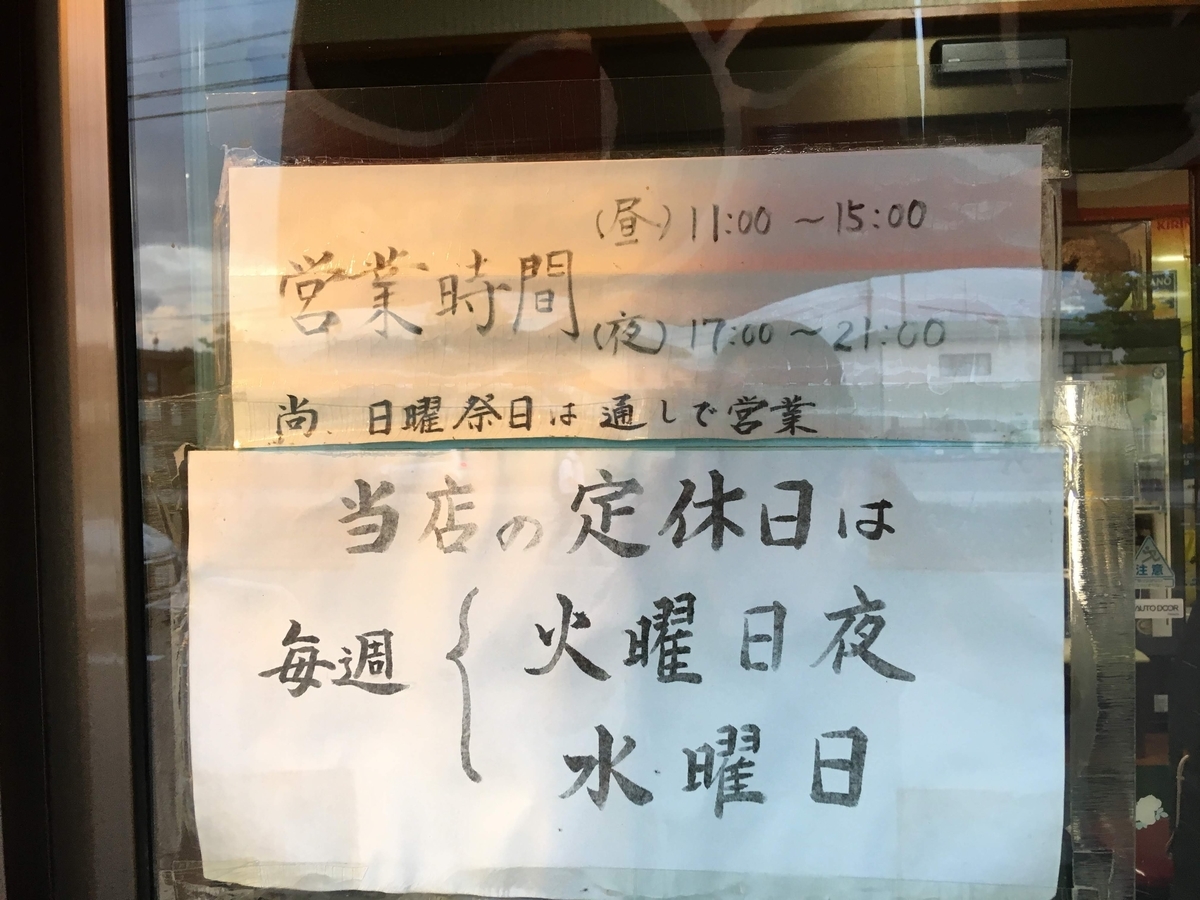 (昼) 11:00 〜15:00
営業時間
(夜) 17:00 〜21:00
尚 日曜祭日は通しで営業
当店の定休日は
毎週
火曜日夜
水曜日
注意
AUTO DOOR